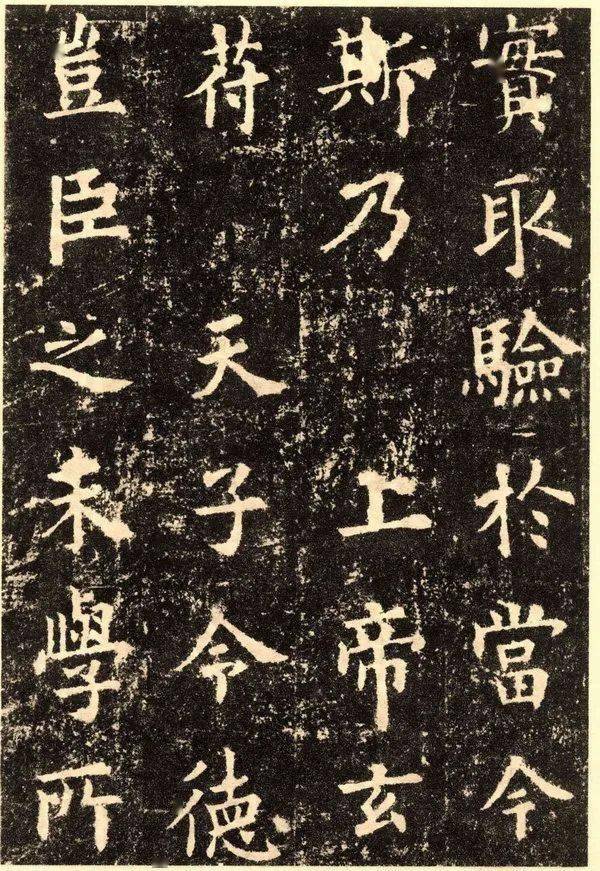 實取驗於當今
斯乃上帝玄
苻天子令德
豈臣之末學所